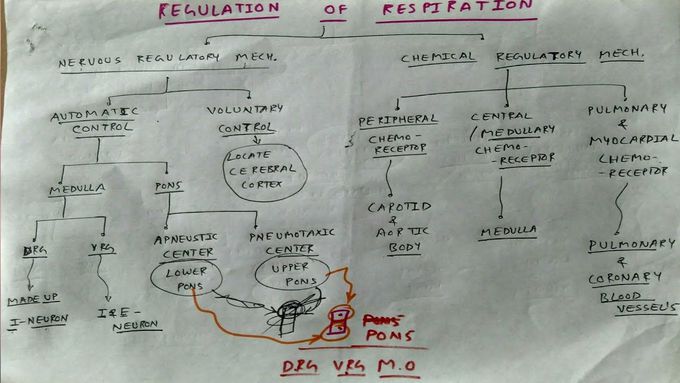 REGULATION OF RESPIRATION
NERVOUS REGULATORY MECH.
CHEMICAL REGULATORY MECH.
AUTOMATIC
CONTROL
VOLUNTARY
CONTROL
LOCATE
CEREBRAL
CORTEX
PERIPHERAL
CHEMO-
RECEPTOR
CENTRAL
/MEDULLARY
CHEMO-
-RECEPTOR
PULMONARY
&
MYOCARDIAL
CHEMO-
-RECEPTOR
MEDULLA
PONS
CAROTID
&
AORTIC
BODY
MEDULLA
PULMONARY
&
CORONARY
BLOOD
VESSELS
DRG
VRG
APNEUSTIC
CENTER
LOWER
PONS
PNEUMOTAXIC
CENTER
UPPER
PONS
MADE UP
I-NEURON
I&E-
NEURON
PONS
PONS
DRG VRG M.O